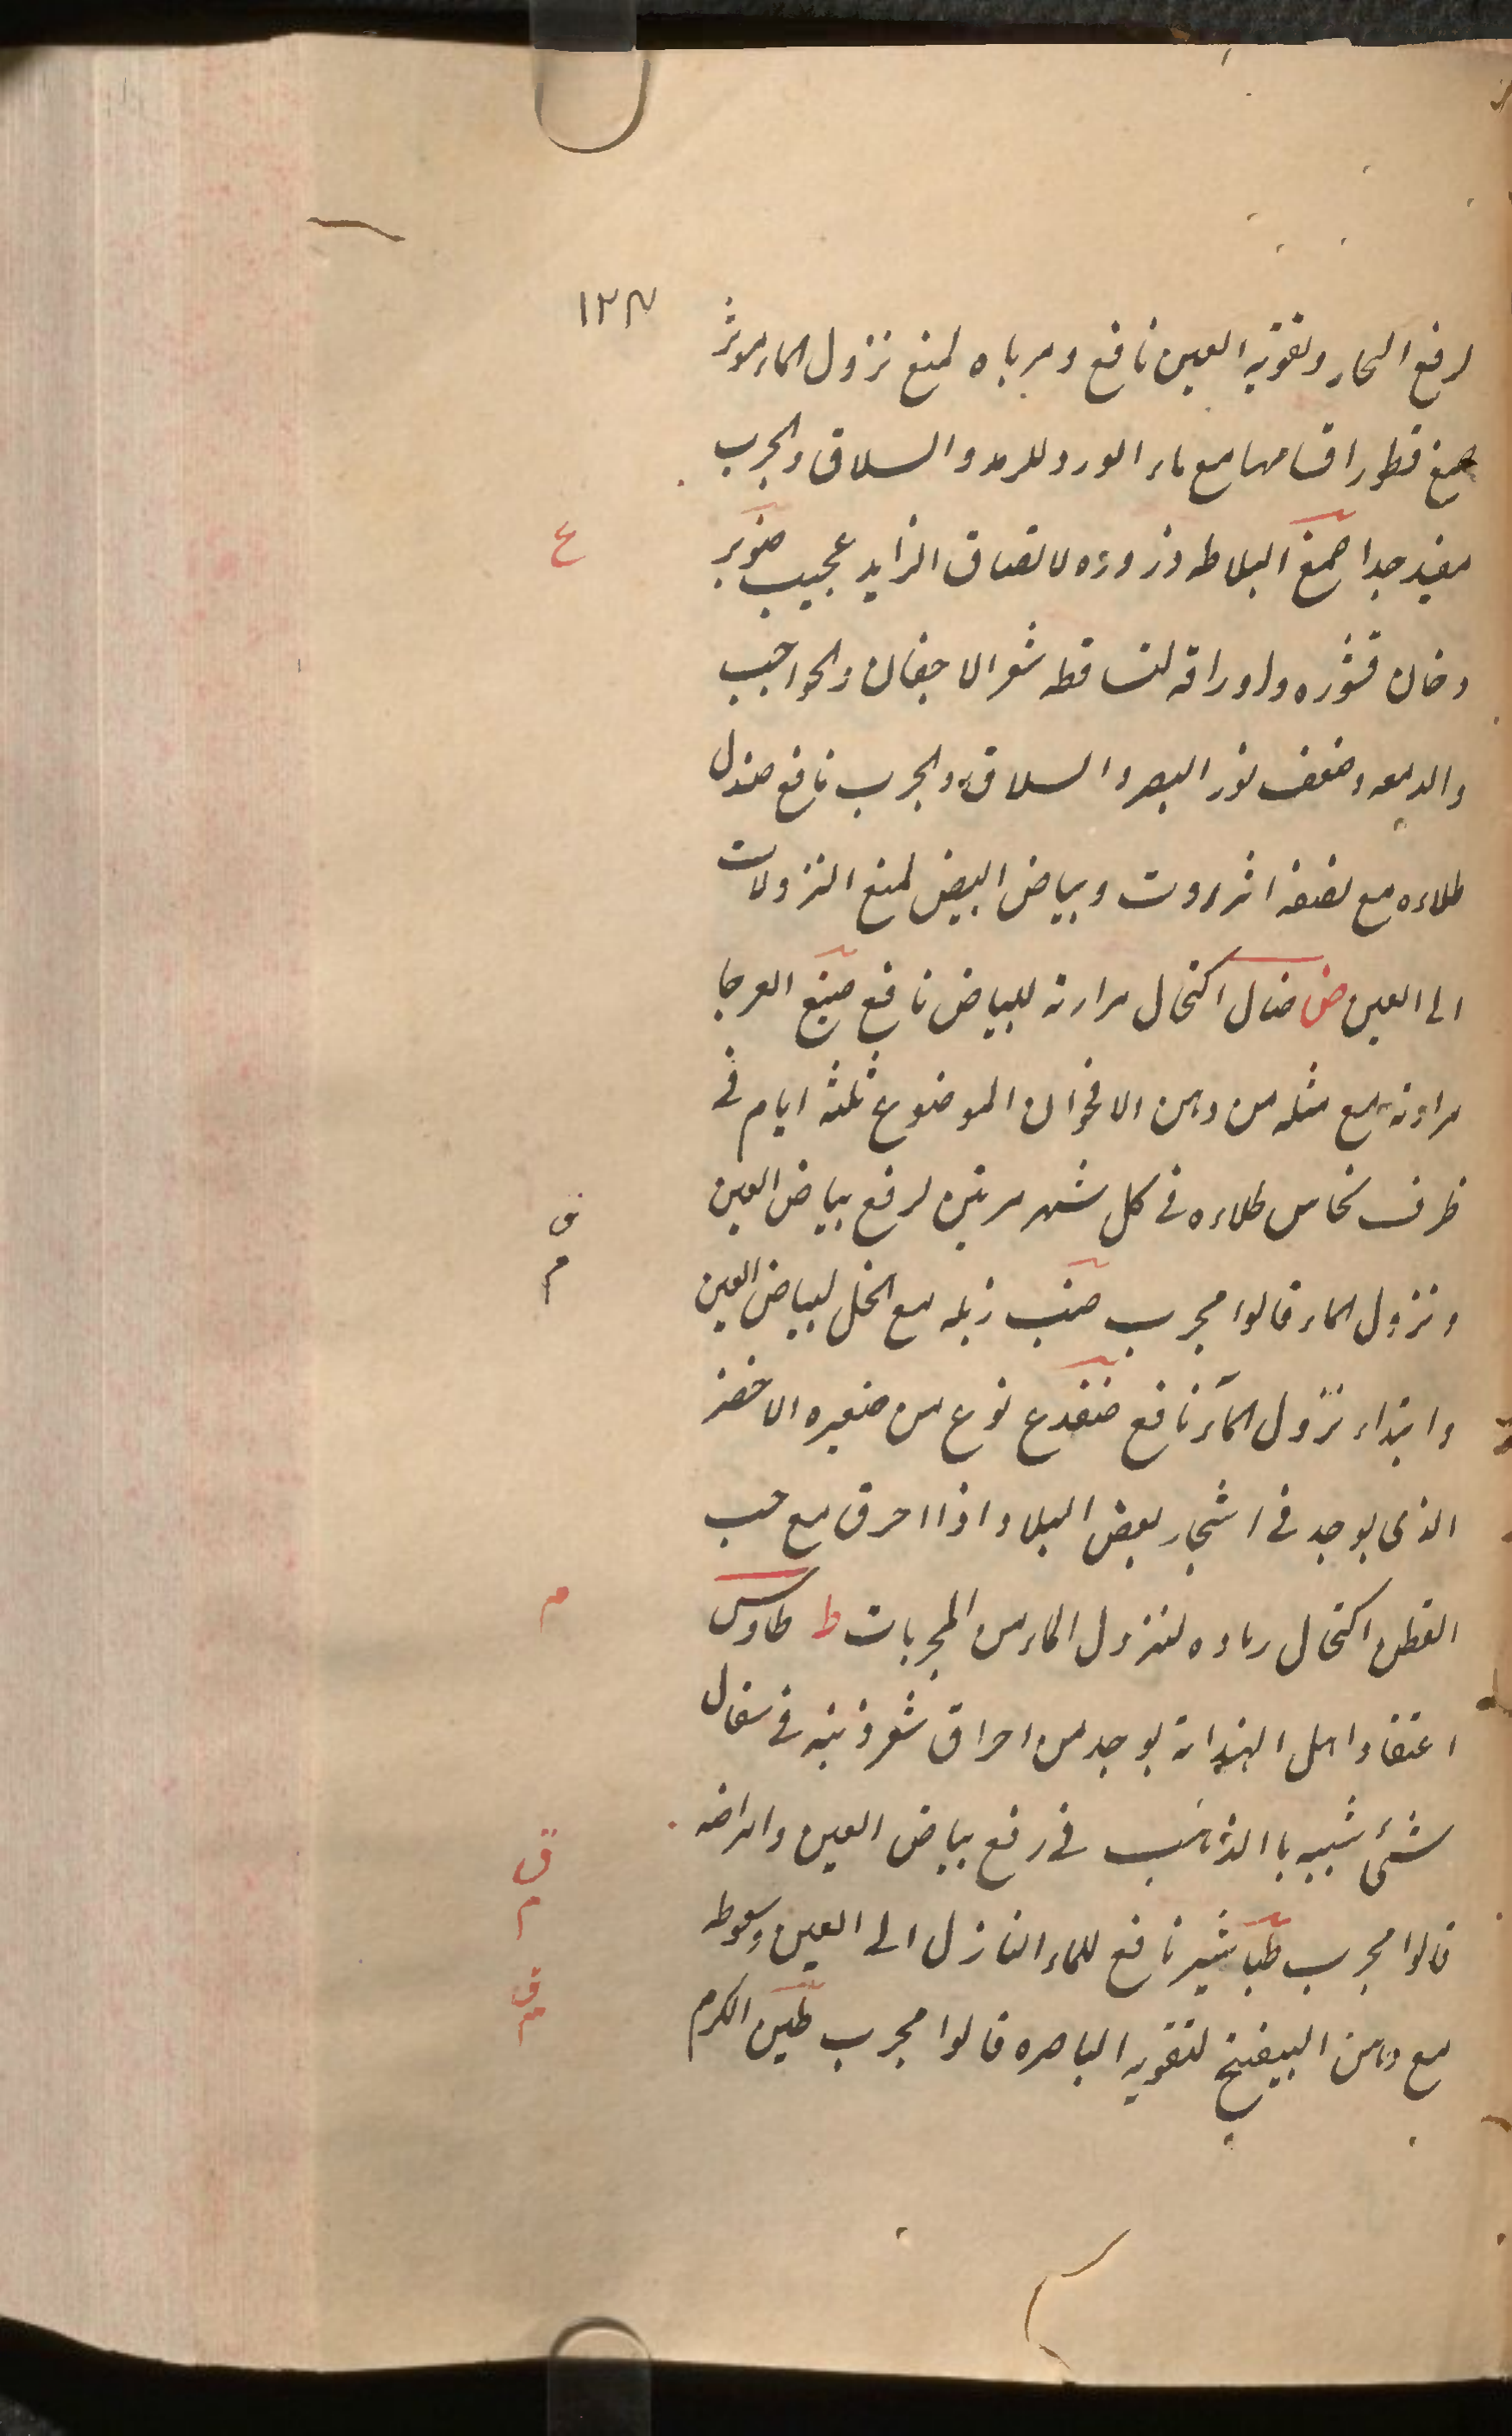 ١٢٨
لرفع البخار وتقوية العين نافع ومرباه لمنع نزول الماء موثر
صمغ قطور اقسامها مع ماء الورد للرمد والسلاق والجرب
مفيد جدا صمغ البلاط وذروره لالتصاق الزايد عجيب صنوبر
ع
دخان قشره واوراقه لتساقط شعر الاجفان والحواجب
والدمعه وضعف نور البصر والسلاق والجرب نافع صندل
طلاءه مع نصفه انزروت وبياض البيض لمنع النزولات
الى العين ض ضال اكتحال مرارته للبياض نافع ضبع العرجا
مرارته مع مثله من دهن الاقحوان الموضوع ثلثه ايام فى
ظرف نحاس طلاءه فى كل شهر مرتين لرفع بياض العين
ق
م
ونزول الماء قالوا مجرب ضب زبله مع الخل لبياض العين
وابتداء نزول الماء نافع ضفدع نوع من صغيره الاخضر
الذى يوجد فى اشجار بعض البلاد اذا احرق مع حب
القطن اكتحال رماده لنزول الماء من المجربات ط طاوس
م
اعتقاد اهل الهند انه يوجد من احراق شعر ذنبه فى سفال
شئ شبيه باالذهب فى رفع بياض العين وامراضه
ق
م
قالوا مجرب طباشير نافع للماء النازل الى العين وسعوطه
ق
م
مع دهن البنفسج لتقويه الباصره قالوا مجرب طين الكرم